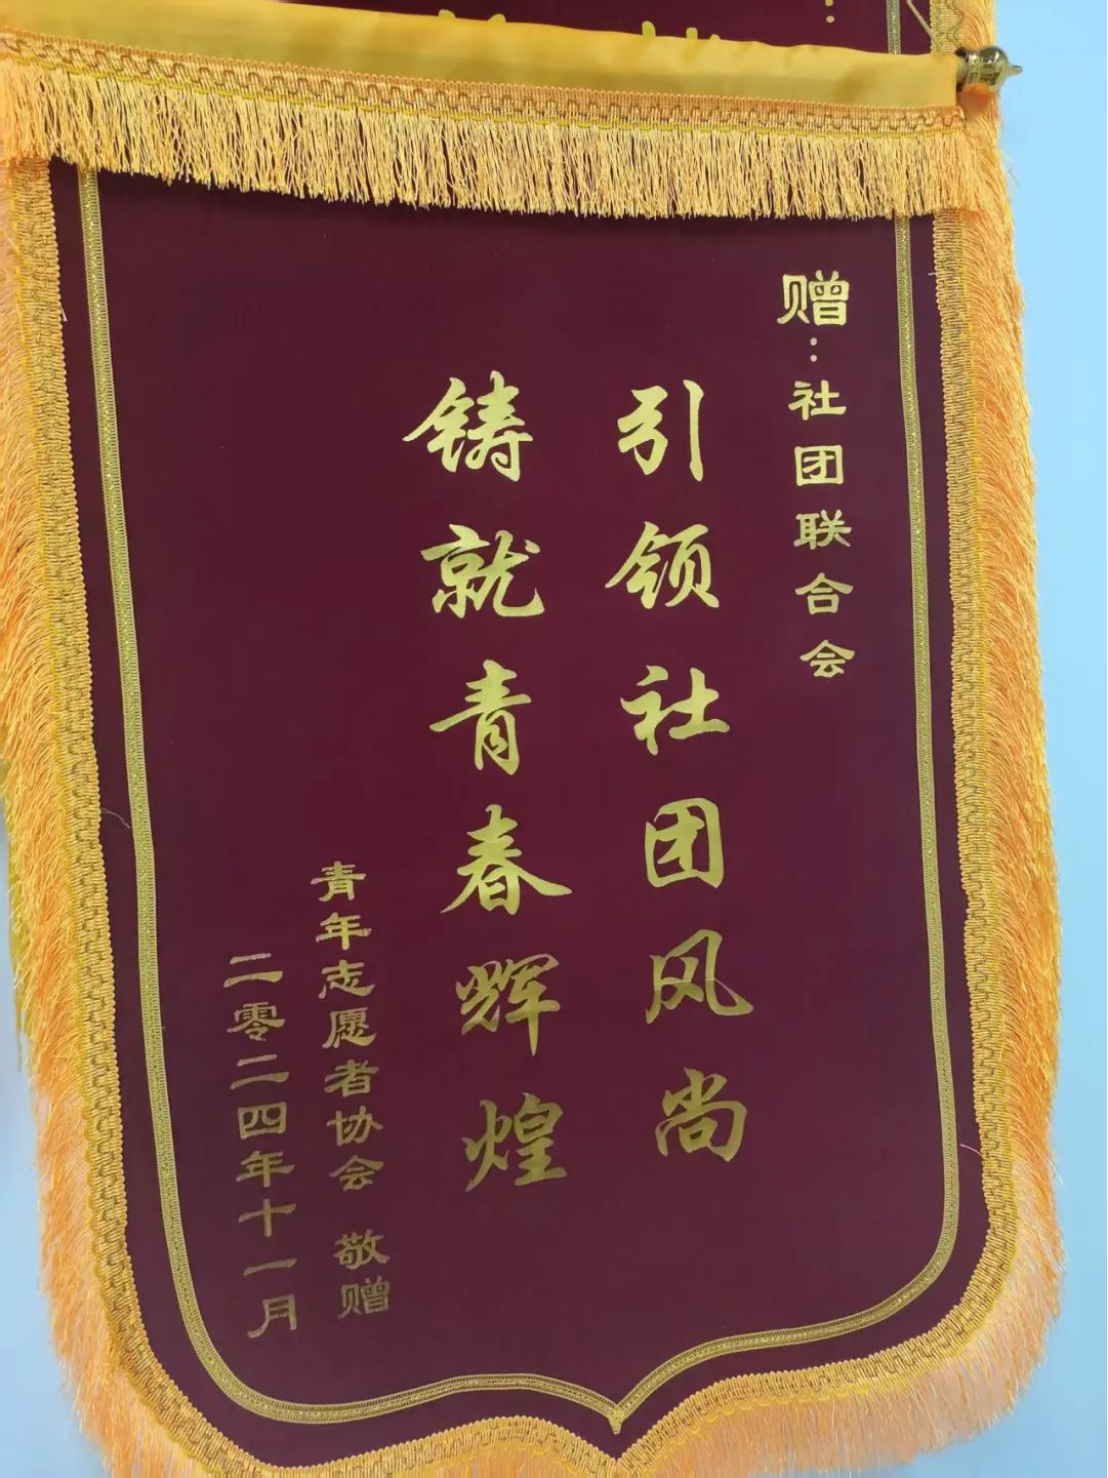 赠：社团联合会
引领社团风尚
铸就青春辉煌
青年志愿者协会 敬赠
二零二四年十一月